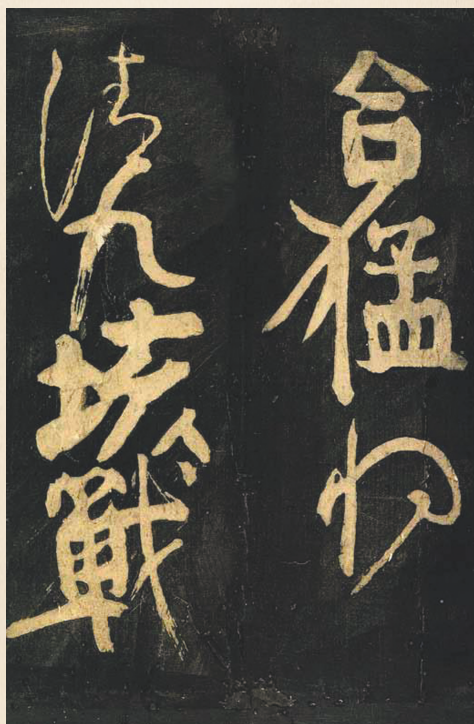 合猛將
清九垓戰